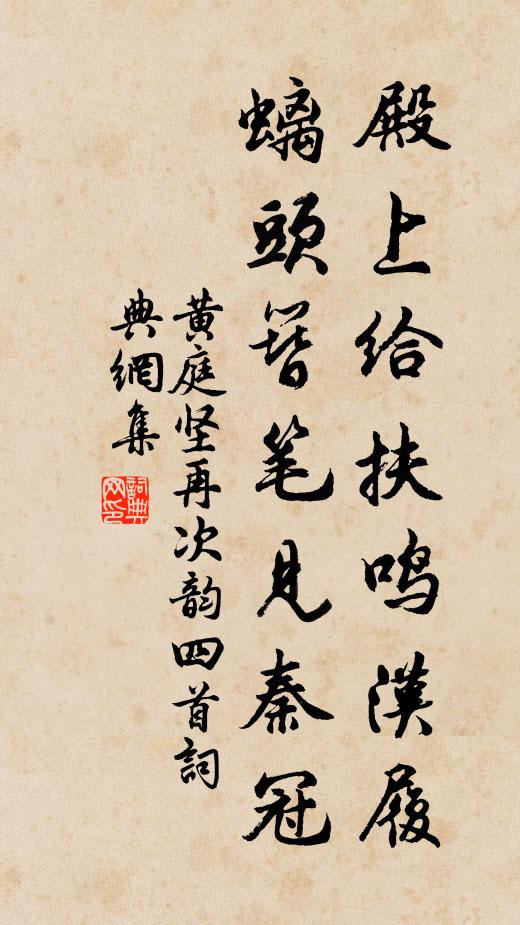 殿上给扶鸣漢履
螭頭簪笔見秦冠
黄庭坚再次韵四首詞
典網集
詞典网印